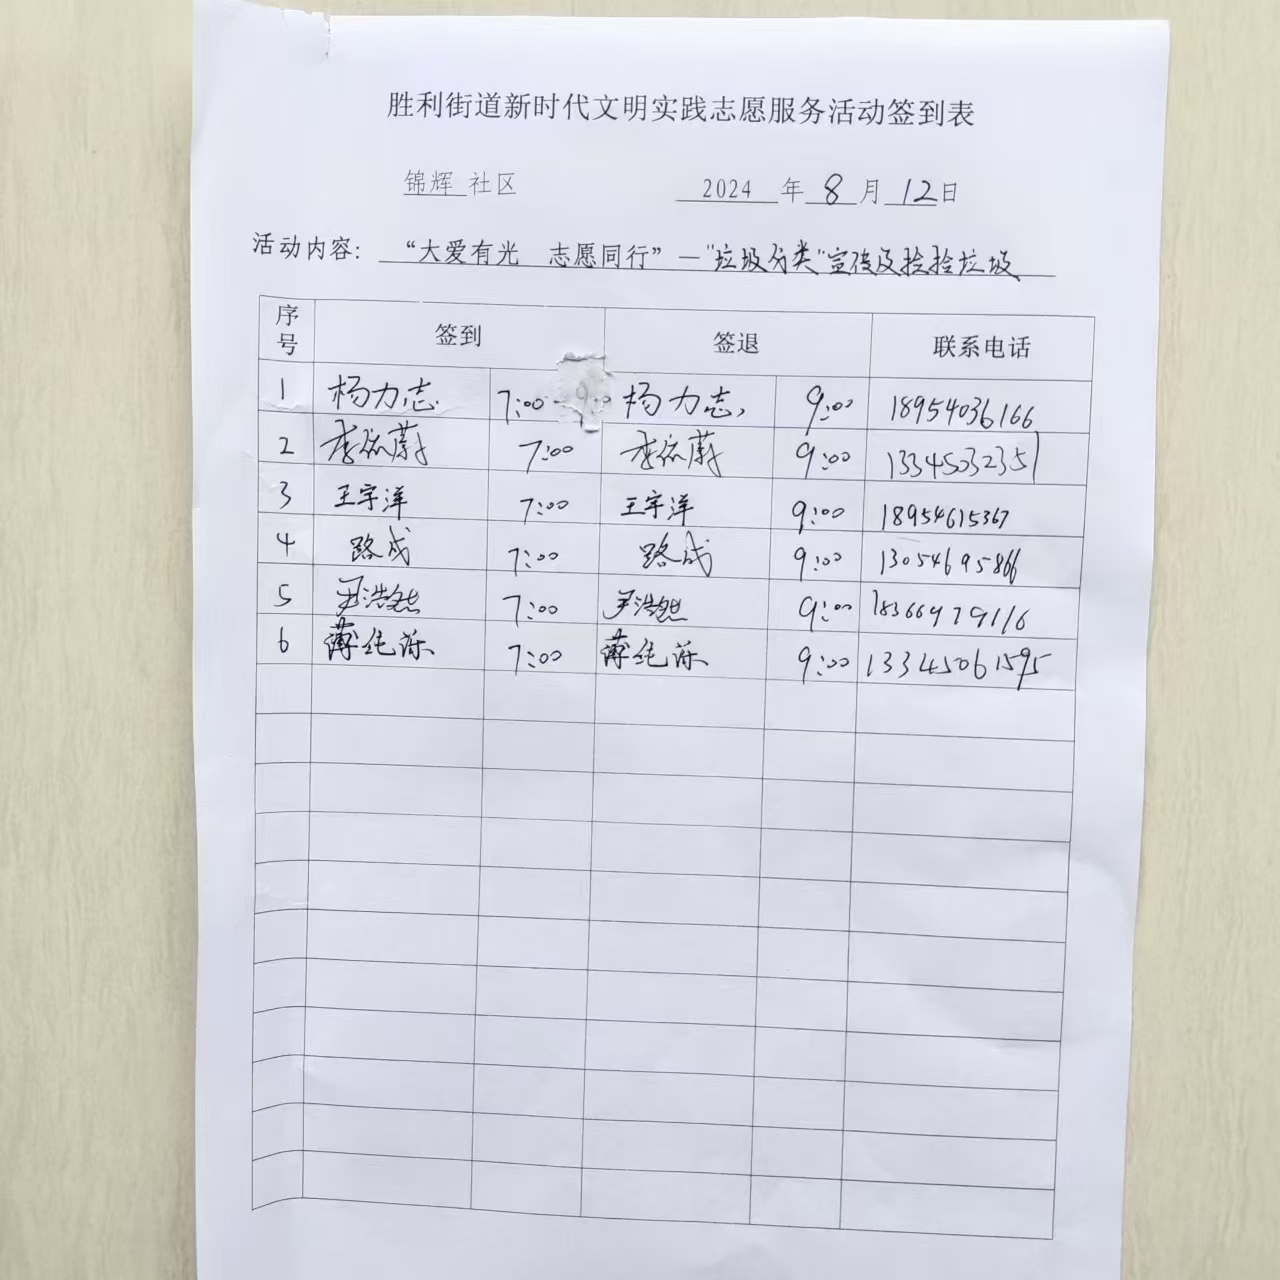 胜利街道新时代文明实践志愿服务活动签到表
锦辉 社区 2024 年 8 月 12 日
活动内容： “大爱有光 志愿同行”—“垃圾分类”宣传及捡拾垃圾
序号 签到 签退 联系电话
1 杨力志 7:00 杨力志 9:00 18954036166
2 李依蔚 7:00 李依蔚 9:00 13345032351
3 王宇洋 7:00 王宇洋 9:00 18954615367
4 路成 7:00 路成 9:00 13054695866
5 尹浩然 7:00 尹浩然 9:00 18366979116
6 薄纯泺 7:00 薄纯泺 9:00 13345061595